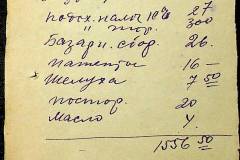 подох. налог 10% 27
" тор. 300
Базарн. сбор. 26.
патенты 16 —
Шелуха 7 50
постор. 20
Масло 4.
1556 50